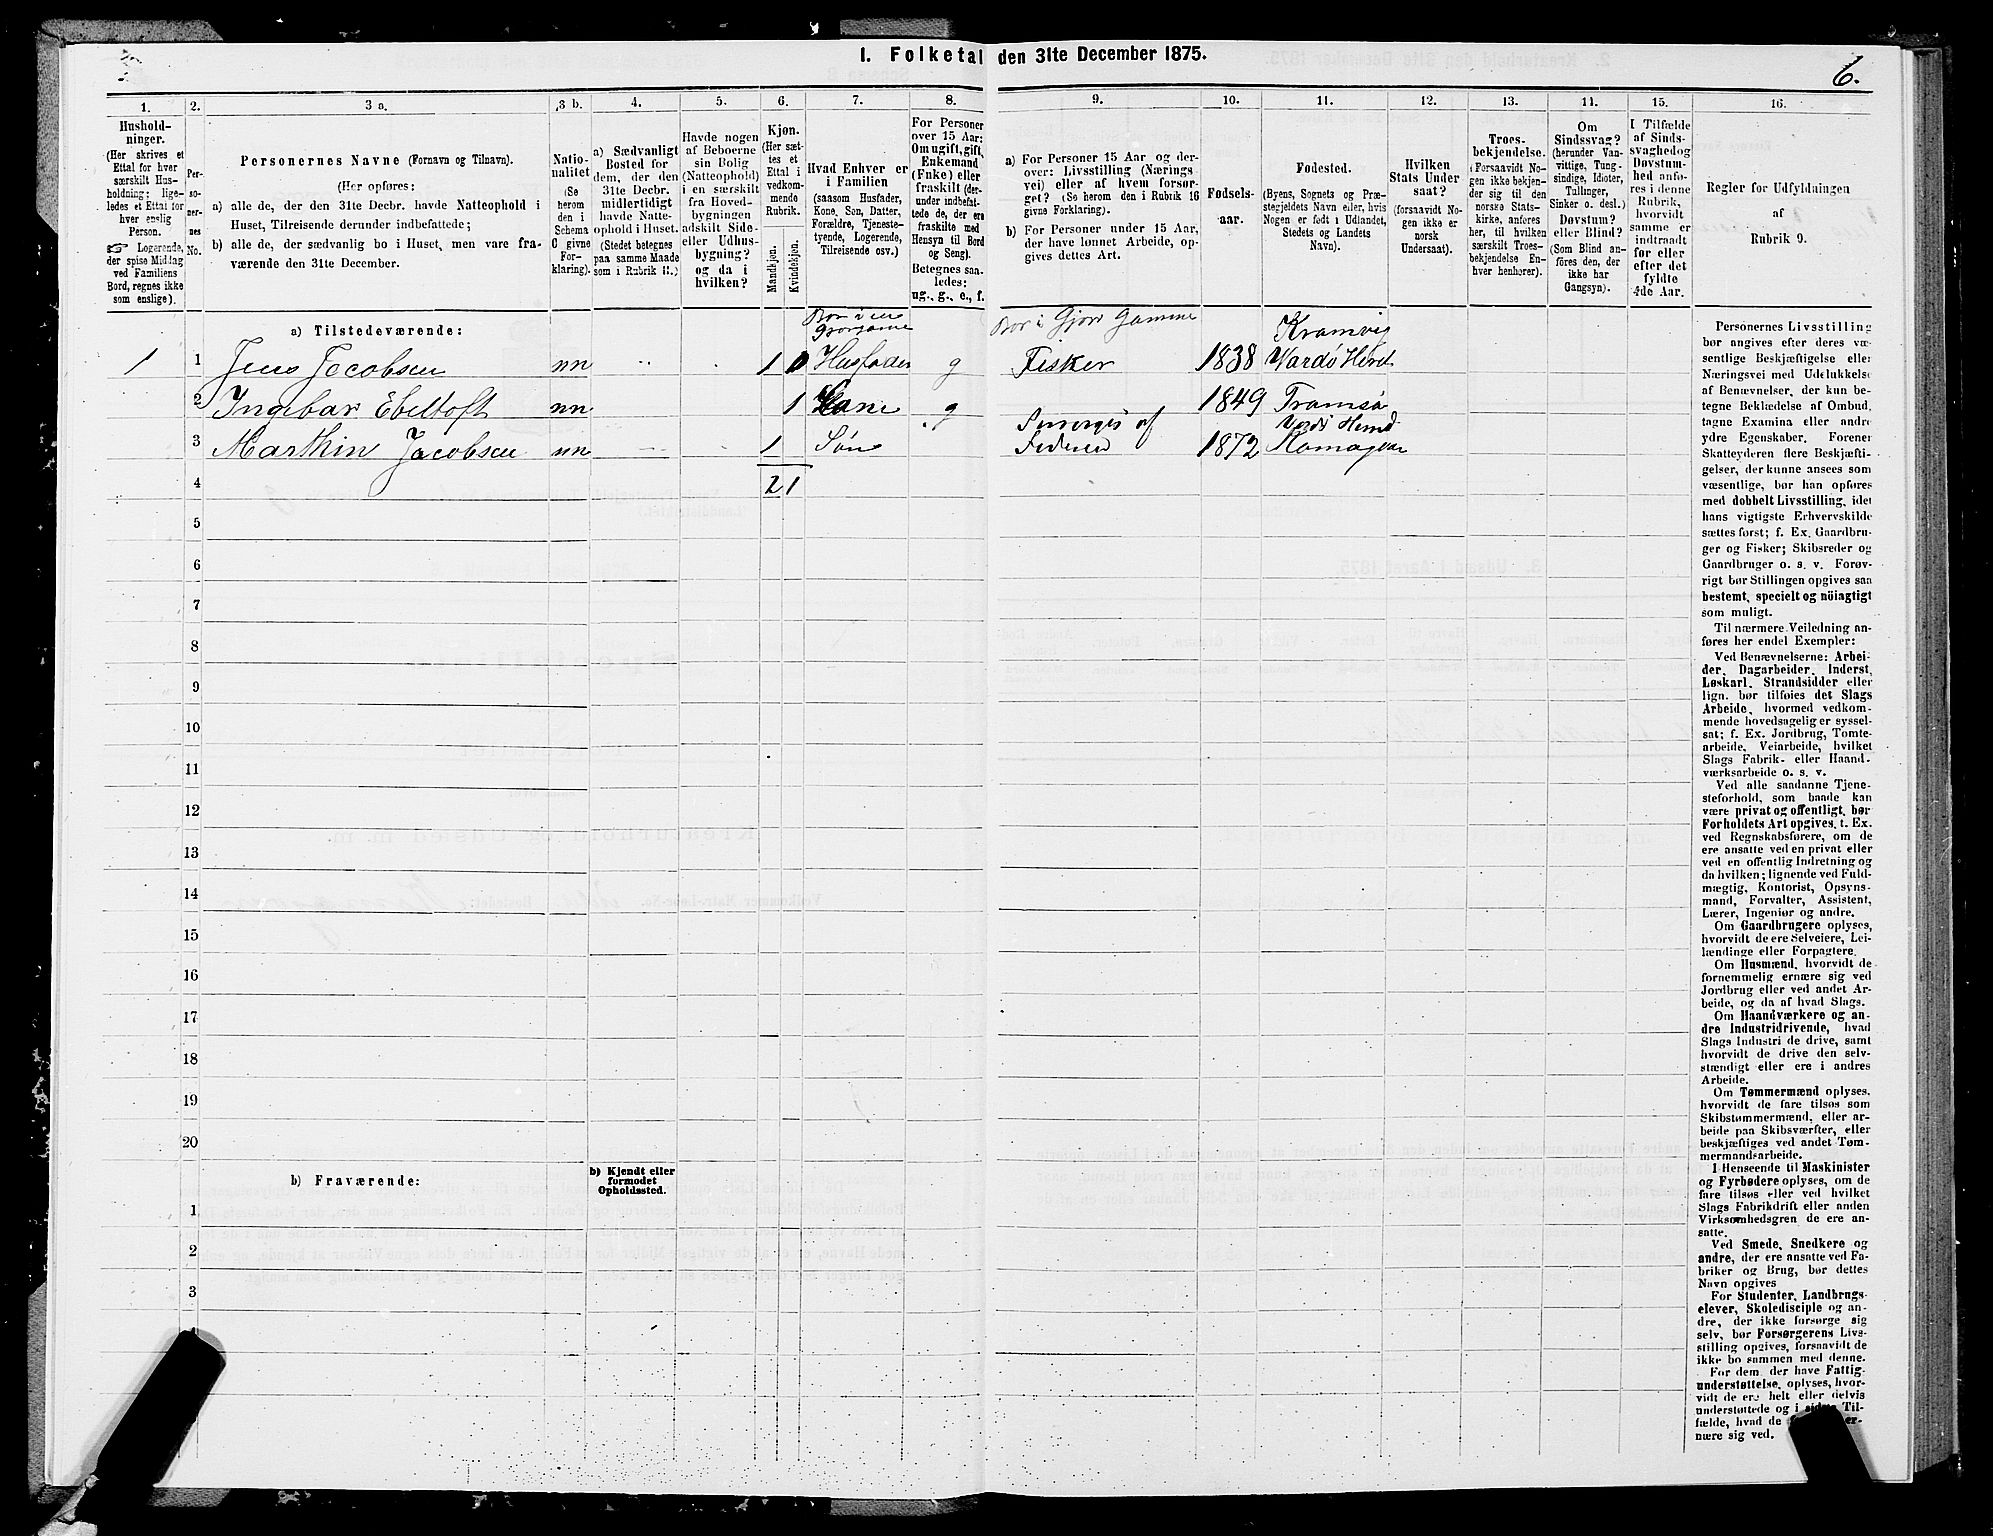 I. Folketal den 31te December 1875.
6.
1.
Hushold-
ninger.
(Her skrives et
Ettal for hver
særskilt Hus-
holdning; lige-
ledes et Ettal for
hver enslig
Person.
☞ Logerende,
der spise Middag
ved Familiens
Bord, regnes ikke
som enslige).
2.
Per-
so-
ner-
nes
No.
3 a.
Personernes Navne (Fornavn og Tilnavn).
(Her opføres:
a) alle de, der den 31te Decbr. havde Natteophold i
Huset, Tilreisende derunder indbefattede;
b) alle de, der sædvanlig bo i Huset, men vare fra-
værende den 31te December.
3 b.
Natio-
nalitet
(Se
herom
den i
Schema
C givne
For-
klaring).
4.
a) Sædvanligt
Bosted for
dem, der den
31te Decbr.
midlertidigt
havde Natte-
ophold i Huset.
(Stedet betegnes
paa samme Maade
som i Rubrik 11.)
5.
Havde nogen
af Beboerne
sin Bolig
(Natteophold)
i en særskilt
fra Hoved-
bygningen
adskilt Side-
eller Udhus-
bygning?
og da i
hvilken?
6.
Kjøn.
(Her sæt-
tes et
Ettal i
vedkom-
mende
Rubrik.
Mandkjøn.
Kvindekjøn.
7.
Hvad Enhver er
i Familien
(saasom Husfader,
Kone, Søn, Datter,
Forældre, Tjeneste-
tyende, Logerende,
Tilreisende osv.)
8.
For Personer
over 15 Aar:
Om ugift, gift,
Enkemand
(Enke) eller
fraskilt (der-
under indbefat-
tede de, der ere
fraskilte med
Hensyn til Bord
og Seng).
Betegnes saa-
ledes:
ug., g., e., f.
9.
a) For Personer 15 Aar og der-
over: Livsstilling (Nærings
vei) eller af hvem forsør-
get? (Se herom den i Rubrik 16
givne Forklaring).
b) For Personer under 15 Aar,
der have lønnet Arbeide, op-
gives dettes Art.
10.
Fødsels-
aar.
11.
Fødested.
(Byens, Sognets og Præ-
stegjeldets Navn eller, hvis
Nogen er født i Udlandet,
Stedets og Landets
Navn).
12.
Hvilken
Stats Under
saat?
(forsaavidt No-
gen ikke er
norsk
Undersaat).
13.
Troes-
bekjendelse.
(Forsaavidt No-
gen ikke bekjen-
der sig til den
norske Stats-
kirke, anføres
her, til hvilken
særskilt Troes-
bekjendelse En-
hver henhører).
14.
Om
Sindssvag?
(herunder Van-
vittige, Tung-
sindige, Idioter,
Tullinger,
Sinker o. desl.)
Døvstum?
eller Blind?
(Som Blind an-
føres den, der
ikke har
Gangsyn).
15.
I Tilfælde
af Sinds-
svaghed og
Døvstum-
hed anfø-
res i denne
Rubrik,
hvorvidt
samme er
indtraadt
før eller
efter det
fyldte
4de Aar.
16.
Regler for Udfyldningen
af
Rubrik 9.
a) Tilstedeværende:
Bor i en
Bor i Gjor Gamme
Kramvig
1 1 Jens Jacobsen nn 1 Husfader g Fisker 1838 Vardø Herd
2 Ingebar Ebeltoft nn 1 Kone g 1849 Tromsø
Vardø Herred
3 Marthin Jacobsen nn 1 Søn Forsørges af Faderen 1872 Komagvær
4 2 1
5
6
7
8
9
10
11
12
13
14
15
16
17
18
19
20
b) Fraværende:
b) Kjendt eller
formodet
Opholdssted.
1
2
3
Personernes Livsstilling
bør angives efter deres væ-
sentlige Beskjæftigelse eller
Næringsvei med Udelukkelse
af Benævnelser, der kun be-
tegne Beklædelse af Ombud,
tagne Examina eller andre
ydre Egenskaber. Forener
Skatteyderen flere Beskjæfti-
gelser, der kunne ansees som
væsentlige, bør han opføres
med dobbelt Livsstilling, idet
hans vigtigste Erhvervskilde
sættes først; f. Ex. Gaardbru-
ger og Fisker; Skibsreder og
Gaardbruger o. s. v. Forøv-
rigt bør Stillingen opgives saa
bestemt, specielt og nöiagtigt
som muligt.
Til nærmere Veiledning an-
føres her endel Exempler:
Ved Benævnelserne: Arbei-
der, Dagarbeider, Inderst,
Løskarl, Strandsidder eller
lign. bør tilføies det Slags
Arbeide, hvormed vedkom-
mende hovedsagelig er syssel-
sat; f. Ex. Jordbrug, Tomte-
arbeide, Veiarbeide, hvilket
Slags Fabrik- eller Haand-
værksarbeide o. s. v.
Ved alle saadanne Tjene-
steforhold, som baade kan
være privat og offentligt, bør
Forholdets Art opgives, t. Ex.
ved Regnskabsførere, om de
ere ansatte ved en privat eller
ved en offentlig Indretning og
da hvilken; lignende ved Fuld-
mægtig, Kontorist, Opsyns-
mand, Forvalter, Assistent,
Lærer, Ingeniør og andre.
Om Gaardbrugere oplyses,
hvorvidt de ere Selveiere, Lei-
lændinge eller Forpagtere.
Om Husmænd, hvorvidt de
fornemmelig ernære sig ved
Jordbrug eller ved andet Ar-
beide, og da af hvad Slags.
Om Haandværkere og an-
dre Industridrivende, hvad
Slags Industri de drive, samt
hvorvidt de drive den selv-
stændigt eller ere i andres
Arbeide.
Om Tømmermænd oplyses,
hvorvidt de fare tilsøs som
Skibstømmermænd, eller ar-
beide paa Skibsværfter, eller
beskjæftiges ved andet Tøm-
mermandsarbeide.
I Henseende til Maskinister
og Fyrbødere oplyses, om de
fare tilsøs eller ved hvilket
Slags Fabrikdrift eller anden
Virksomhedsgren de ere an-
satte.
Ved Smede, Snedkere og
andre, der ere ansatte ved Fa-
briker og Brug, bør dettes
Navn opgives
For Studenter, Landbrugs-
elever, Skoledisciple og an-
dre, der ikke forsørge sig
selv, bør Forsørgerens Livs-
stilling opgives, forsaavidt de
ikke bo sammen med denne.
For dem, der have Fattig-
understøttelse, oplyses, hvor-
vidt de ere helt eller delvis
understøttede og i sidste Til-
fælde, hvad de
nære sig ved.